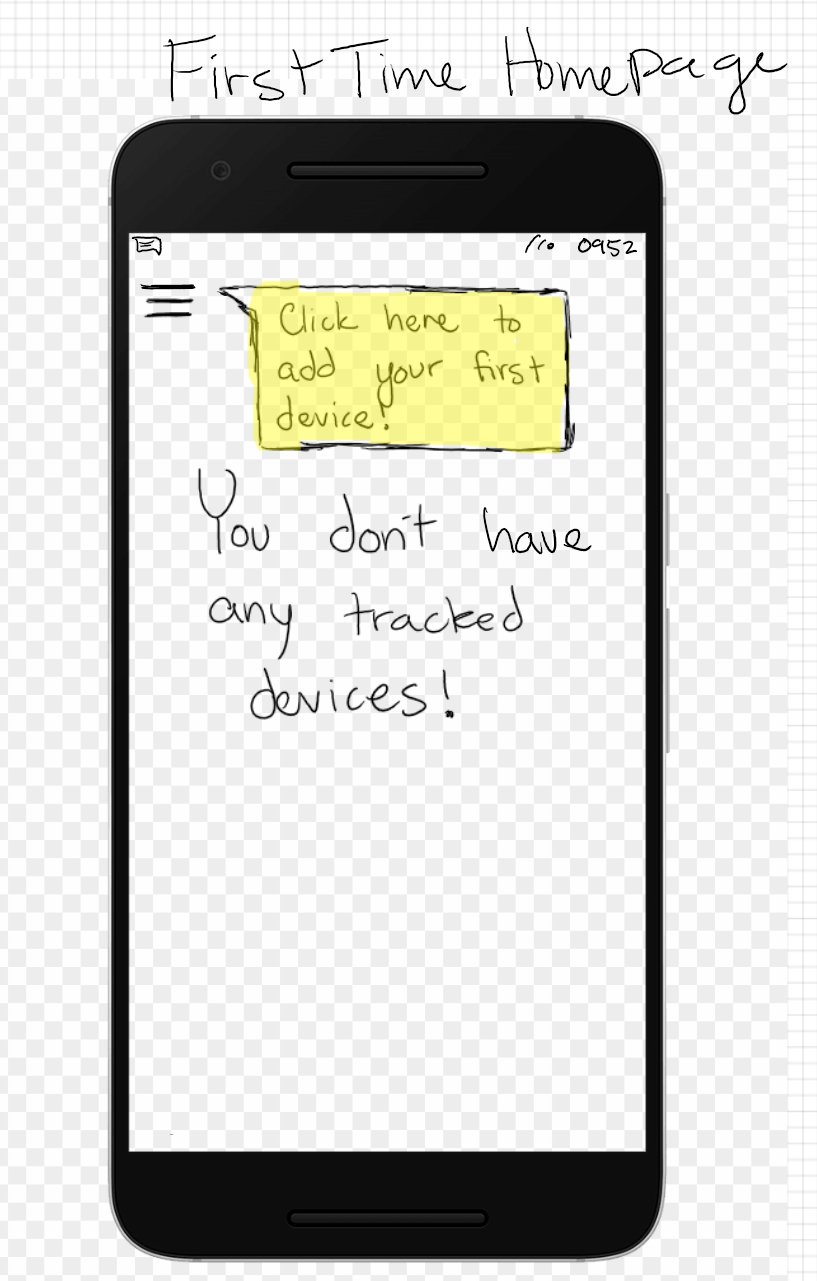 First Time Homepage
0952
Click here to
add your first
device!
You don't have
any tracked
devices!